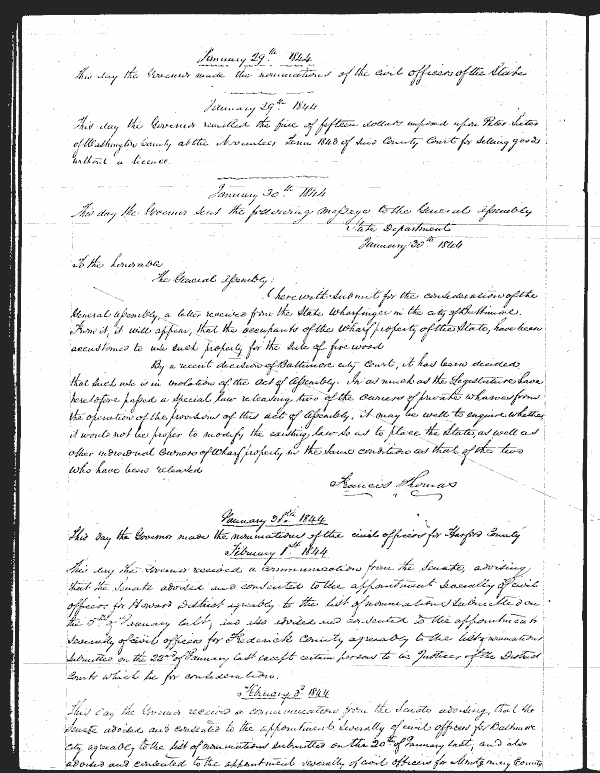 January 29th 1844
This day the Governor made the nominations of the civil officers of the State
January 29th 1844
This day the Governor remitted the fine of fifteen dollars imposed upon Peter
of Washington County at the November Term 1843 of said County Court for selling goods
without a licence.
January 30th 1844
This day the Governor sent the following message to the General Assembly
State Department
January 30th 1844
To the honorable
The General Assembly:
I herewith submit for the consideration of the
General Assembly, a letter received from the State Wharfinger in the city of Baltimore.
From it, it will appear, that the occupants of the wharf property of the State, have been
accustomed to use such property for the sale of fire wood
By a recent decision of Baltimore city Court, it has been decided
that such use is in violation of the Act of Assembly. In as much as the Legislature have
heretofore passed a special law releasing two of the owners of private wharves from
the operation of the provisions of this act of Assembly, it may be well to enquire whether
it would not be proper to modify the existing law so as to place the State, as well as
other individual owners of wharf property in the same condition as that of the two
who have been released
Francis Thomas
January 31st 1844
This day the Governor made the nominations of the civil officers for Harford County
February 1st 1844
This day the Governor received a communication from the Senate, advising
that the Senate advised and consented to the appointment severally of civil
officers for Howard District agreably to the list of nominations submitted on
the 5th of January last, and also advised and consented to the appointments
severally of civil officers for Frederick County agreably to the list of nominations
submitted on the 22nd of January last except certain persons to be Justices of the District
Courts which lie for consideration.
February 3d 1844
This day the Governor received a communication from the Senate advising, that the
Senate advised and consented to the appointment severally of civil officers for Baltimore
city agreably to the list of nominations submitted on the 20th of January last, and also
advised and consented to the appointment severally of civil officers for Montgomery County